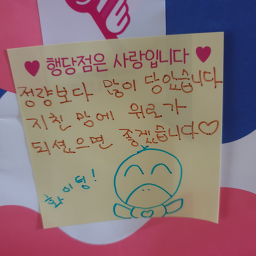 ♥ 행당점은 사랑입니다 ♥
정량보다 많이 담았습니다
지친 맘에 위로가
되셨으면 좋겠습니다♡
화이팅!